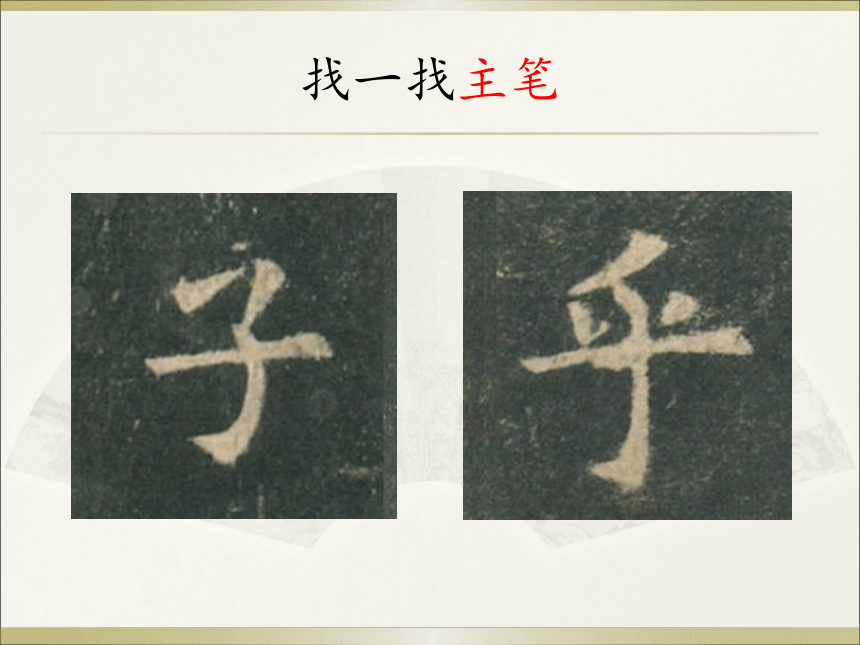 找一找主笔
子 乎